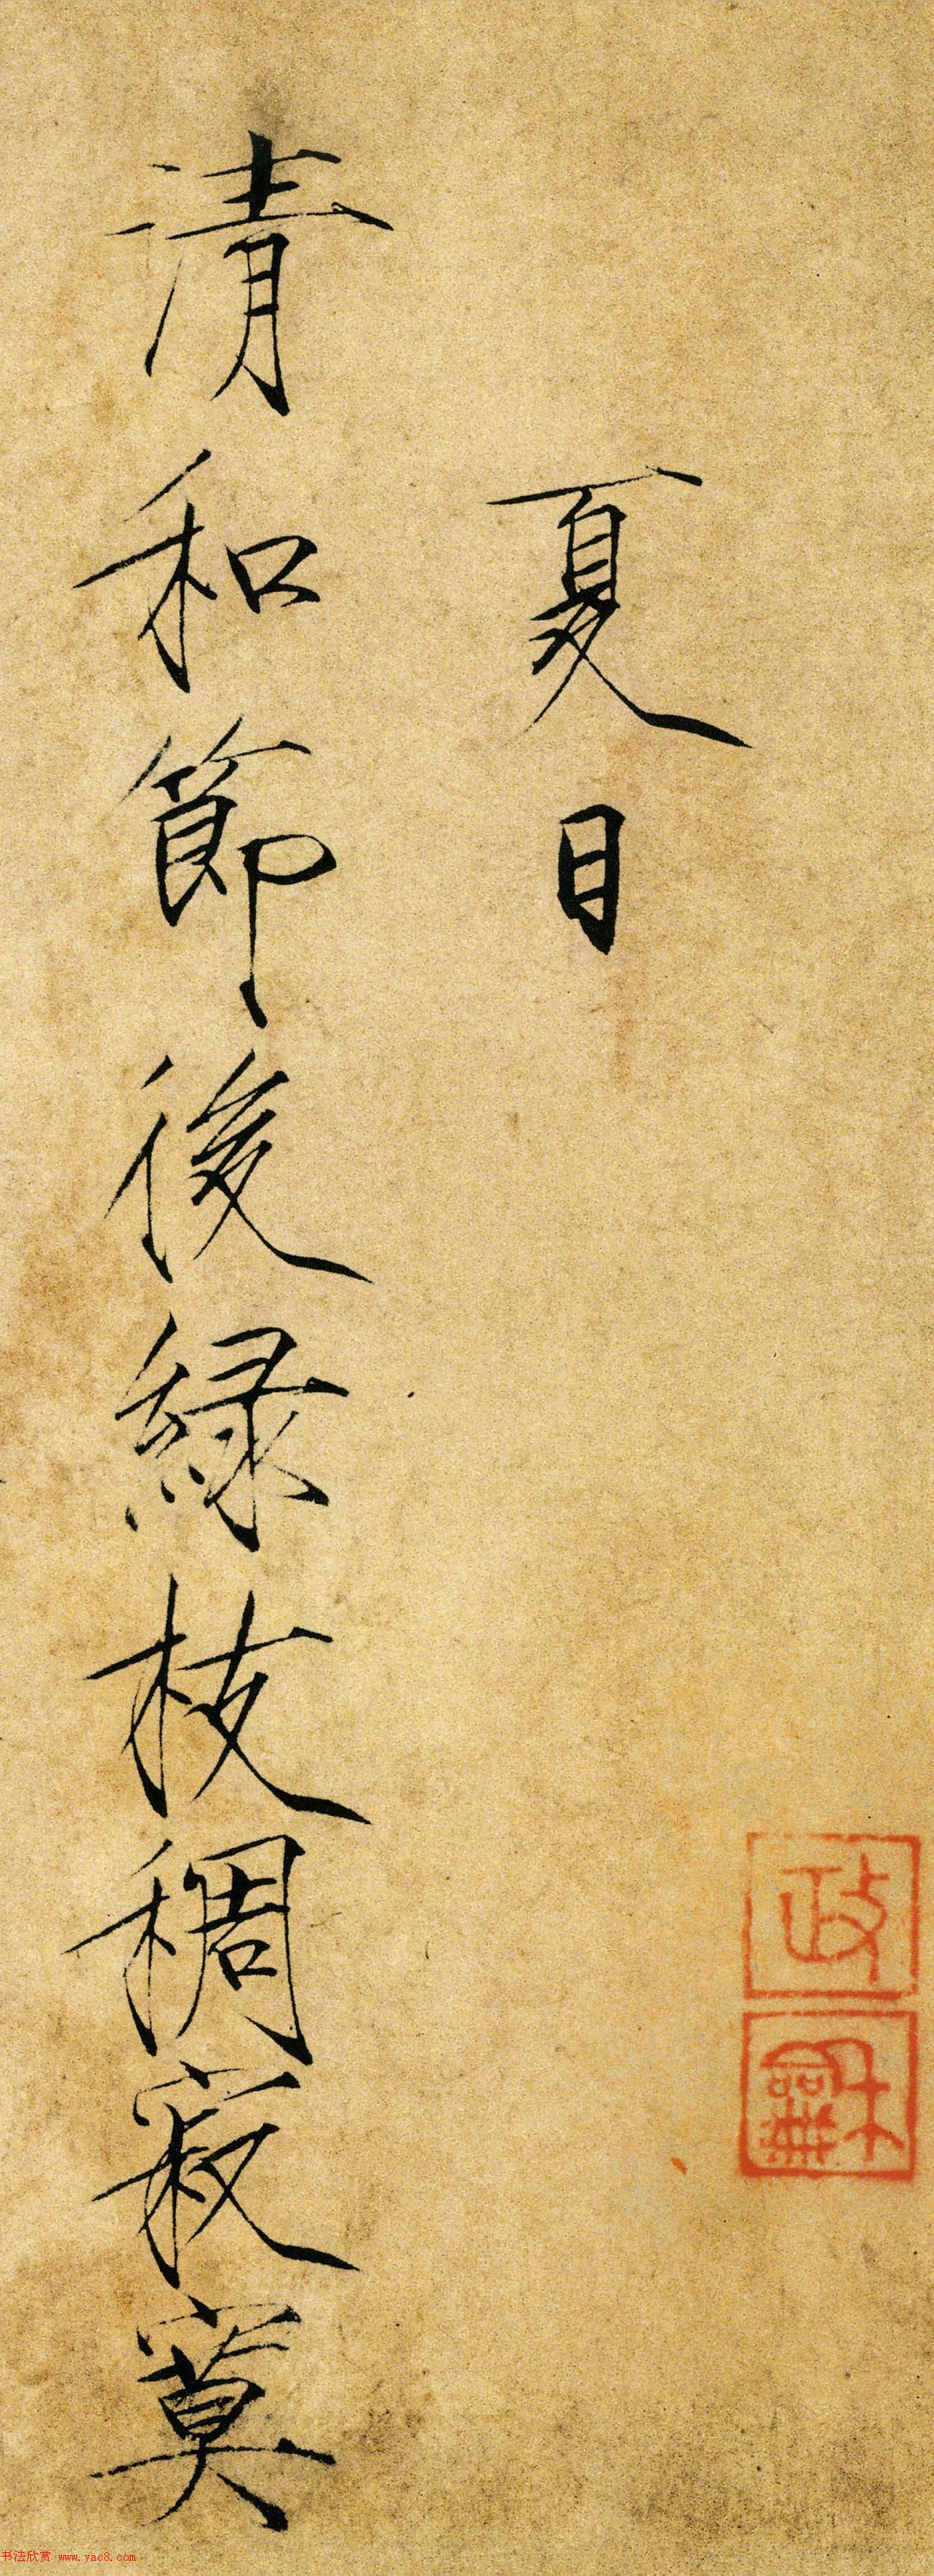 夏日
清和節後綠枝稠寂寞
政
龢
书法欣赏 www.yac8.com